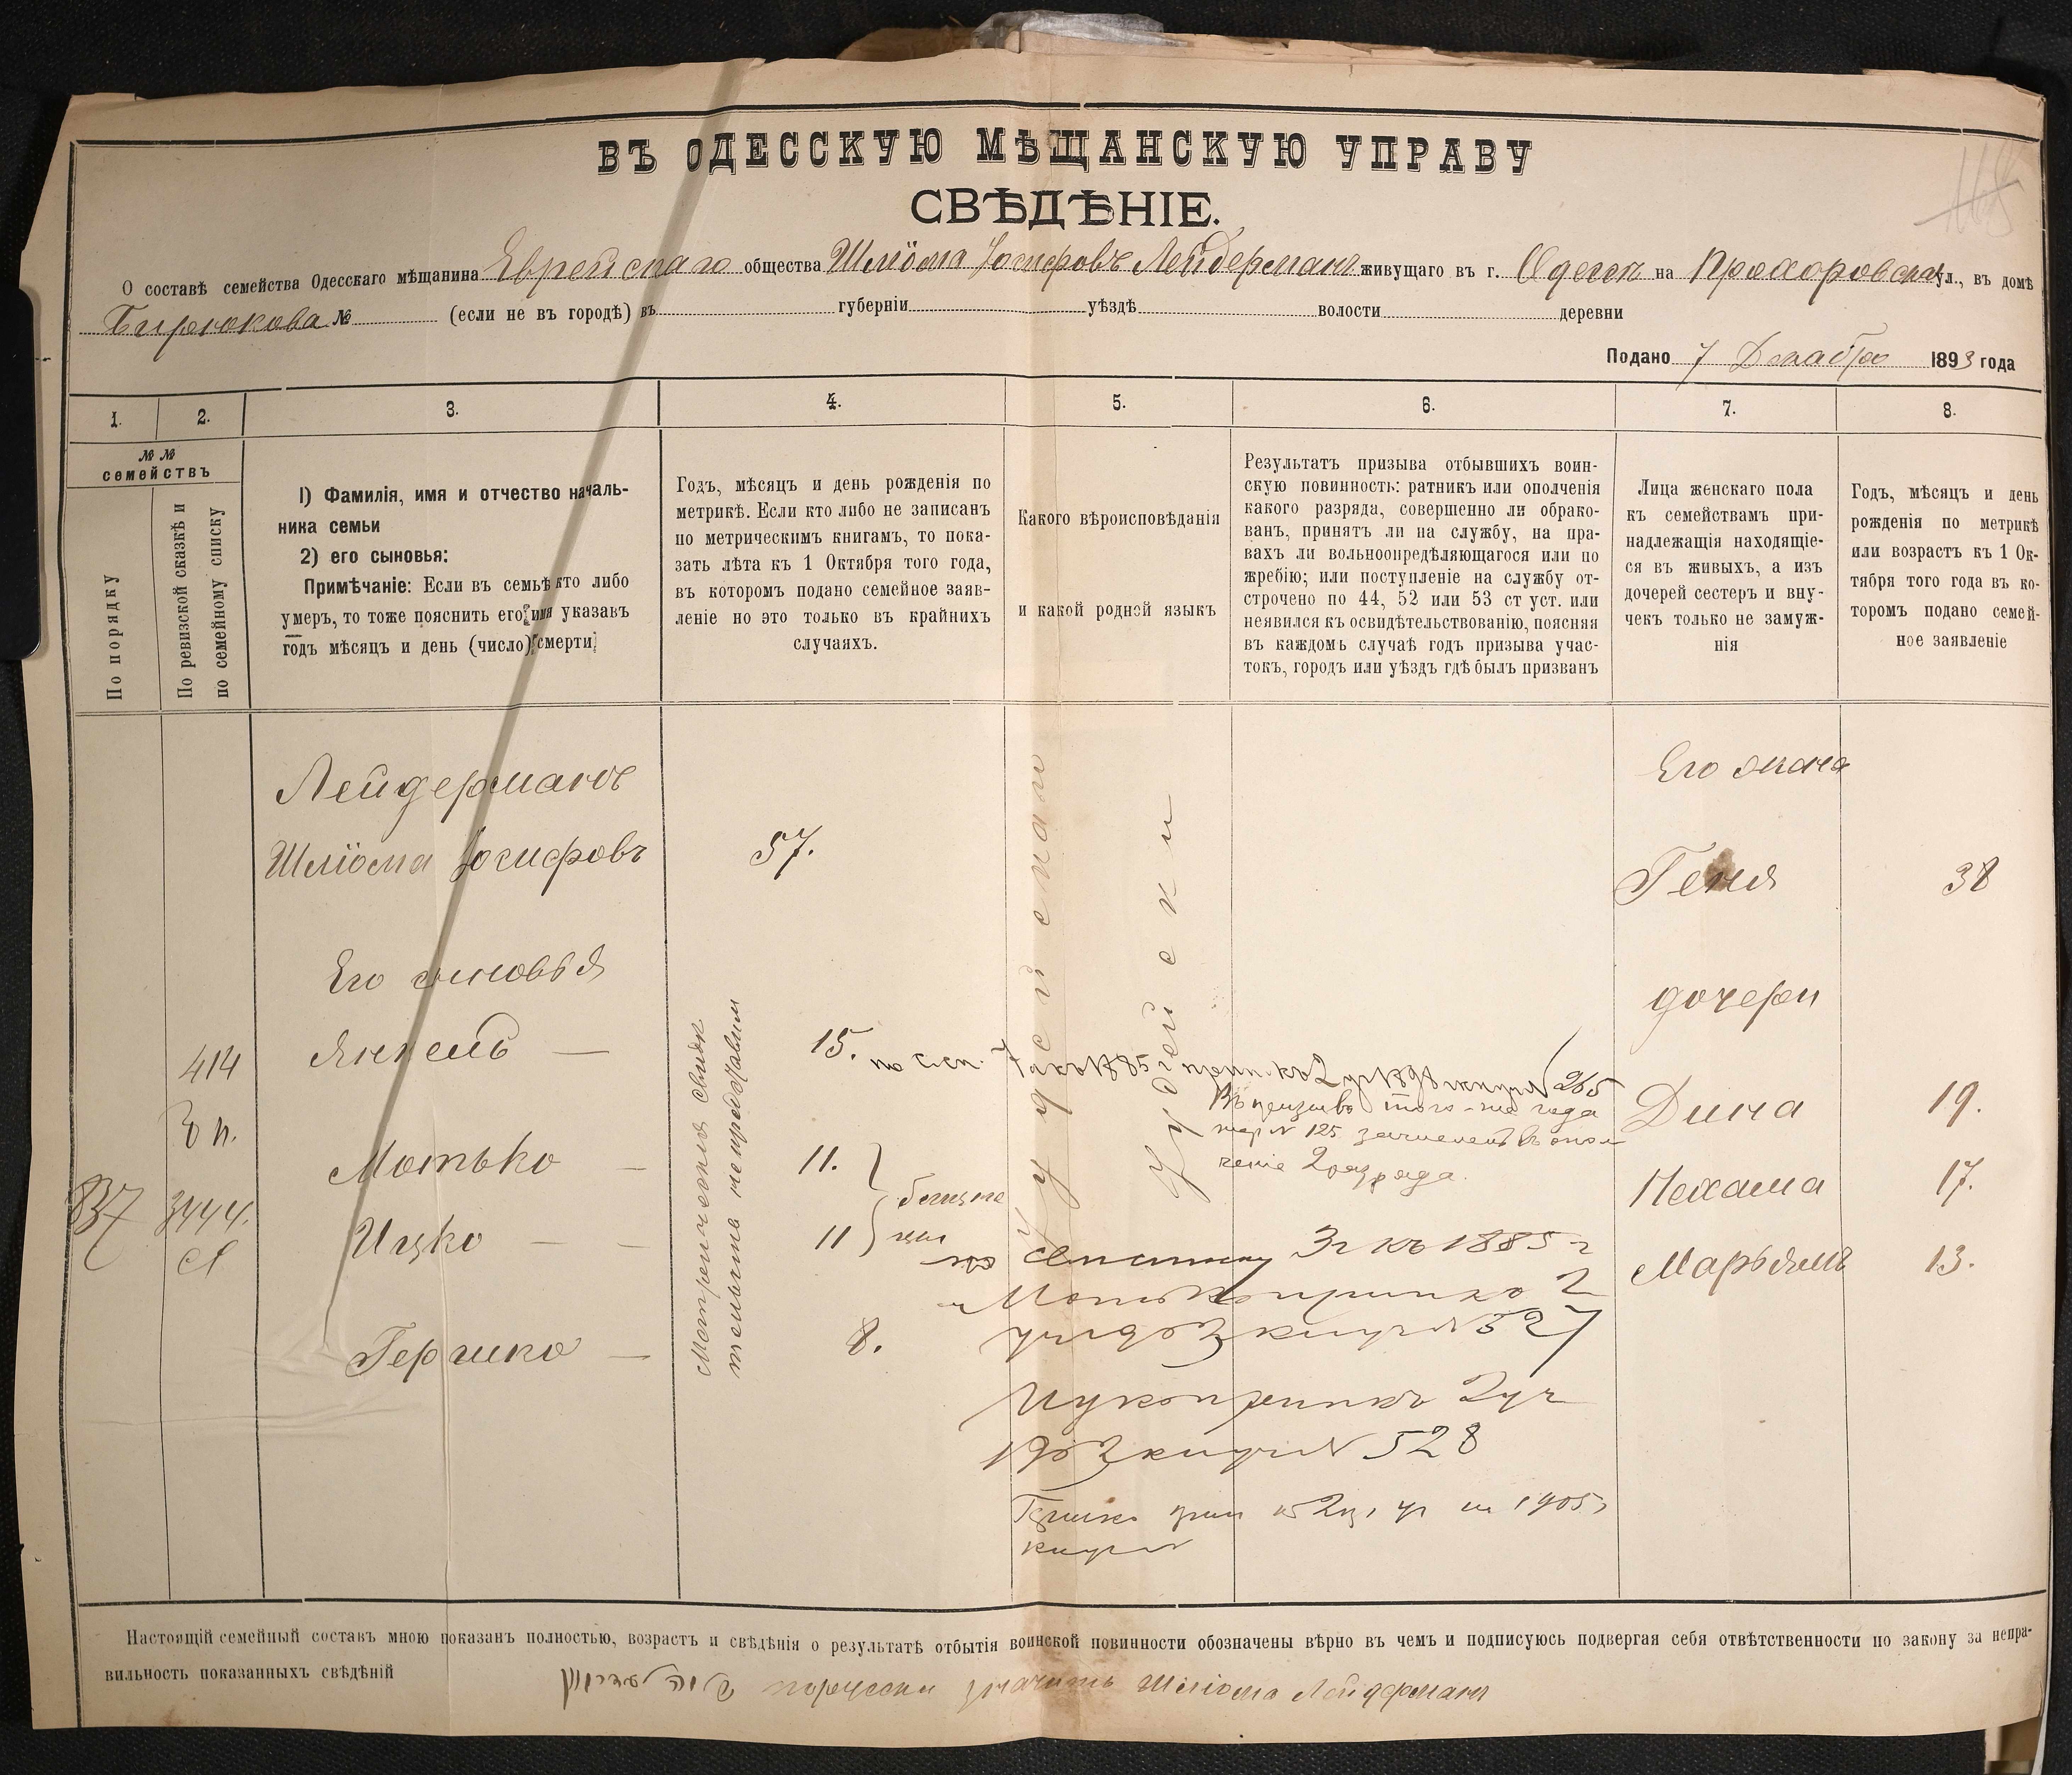 ВЪ ОДЕССКУЮ МѢЩАНСКУЮ УПРАВУ
СВѢДѢНІЕ.
О составѣ семейства Одесскаго мѣщанина Еврейскаго общества Шліома Іосифовъ Лейдерманъ живущаго въ г. Одессѣ на Прохоровской ул., въ домѣ
Бирюкова № (если не въ городѣ) въ губерніи уѣздѣ волости деревни
Подано 7 Декабря 1893 года
1. 2. 3. 4. 5. 6. 7. 8.
№ №
семействъ
По порядку
По ревизской сказкѣ и
по семейному списку
1) Фамилія, имя и отчество началь-
ника семьи
2) его сыновья:
Примѣчаніе: Если въ семьѣ кто либо
умеръ, то тоже пояснить его имя указавъ
годъ мѣсяцъ и день (число) смерти
Годъ, мѣсяцъ и день рожденія по
метрикѣ. Если кто либо не записанъ
по метрическимъ книгамъ, то пока-
зать лѣта къ 1 Октября того года,
въ которомъ подано семейное заяв-
леніе но это только въ крайнихъ
случаяхъ.
Какого вѣроисповѣданія
и какой родной языкъ
Результатъ призыва отбывшихъ воин-
скую повинность: ратникъ или ополченія
какого разряда, совершенно ли обрако-
ванъ, принятъ ли на службу, на пра-
вахъ ли вольноопредѣляющагося или по
жребію; или поступленіе на службу от-
строчено по 44, 52 или 53 ст уст. или
неявился къ освидѣтельствованію, поясняя
въ каждомъ случаѣ годъ призыва учас-
токъ, городъ или уѣздъ гдѣ былъ призванъ
Лица женскаго пола
къ семействамъ при-
надлежащія находящіе-
ся въ живыхъ, а изъ
дочерей сестеръ и вну-
чекъ только не замуж-
нія
Годъ, мѣсяцъ и день
рожденія по метрикѣ
или возрастъ къ 1 Ок-
тября того года въ ко-
торомъ подано семей-
ное заявленіе
Лейдерманъ
Шліома Іосифовъ 57.
Его сыновья
Янкель — 15.
Мотько — 11.
Ицко — — 11
Гершко — 8.
414
837
3444.
Метрическія свидѣ
тельства не представилъ
близне
цы
Іудейскаго
Іудейскій
№ 265
Въ призывъ того-же года
жер № 125 зачисленъ въ опол
ченіе 2 разряда.
по сем списку 3 г къ 1885 г
Мотько припис 2
уч № 527
Ицко припис 2 уч
№ 528
Гершко 1905
Его жена
Геня 38
дочери
Дина 19.
Нехама 17.
Марьямъ 13.
Настоящій семейный составъ мною показанъ полностью, возрастъ и свѣдѣнія о результатѣ отбытія воинской повинности обозначены вѣрно въ чемъ и подписуюсь подвергая себя отвѣтственности по закону за непра-
вильность показанныхъ свѣдѣній
порусски значитъ Шліома Лейдерманъ